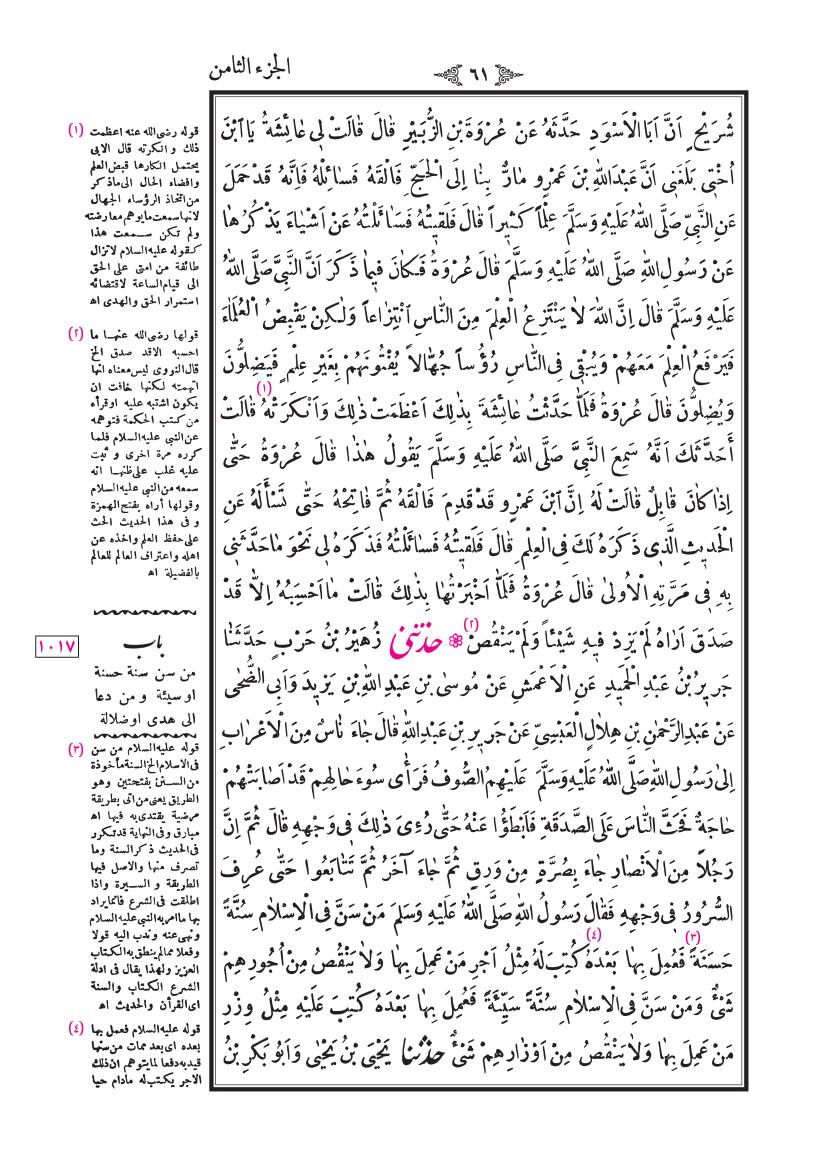 الجزء الثامن
٦١
شُرَيْحٍ اَنَّ اَبَا الْاَسْوَدِ حَدَّثَهُ عَنْ عُرْوَةَ بْنِ الزُّبَيْرِ قَالَ قَالَتْ لِى عَائِشَةُ يَا ابْنَ
اُخْتِى بَلَغَنِى اَنَّ عَبْدَاللّٰهِ بْنَ عَمْرٍو مَارٌّ بِنَا اِلَى الْحَجِّ فَالْقَهُ فَسَائِلْهُ فَاِنَّهُ قَدْ حَمَلَ
عَنِ النَّبِىِّ صَلَّى اللّٰهُ عَلَيْهِ وَسَلَّمَ عِلْماً كَثِيراً قَالَ فَلَقِيتُهُ فَسَائَلْتُهُ عَنْ اَشْيَاءَ يَذْكُرُهَا
عَنْ رَسُولِ اللّٰهِ صَلَّى اللّٰهُ عَلَيْهِ وَسَلَّمَ قَالَ عُرْوَةُ فَكَانَ فِيمَا ذَكَرَ اَنَّ النَّبِىَّ صَلَّى اللّٰهُ
عَلَيْهِ وَسَلَّمَ قَالَ اِنَّ اللّٰهَ لَا يَنْتَزِعُ الْعِلْمَ مِنَ النَّاسِ انْتِزَاعاً وَلٰكِنْ يَقْبِضُ الْعُلَمَاءَ
فَيَرْفَعُ الْعِلْمَ مَعَهُمْ وَيُبْقِى فِى النَّاسِ رُؤُساً جُهَّالاً يُفْتُونَهُمْ بِغَيْرِ عِلْمٍ فَيَضِلُّونَ
وَيُضِلُّونَ قَالَ عُرْوَةُ فَلَمَّا حَدَّثْتُ عَائِشَةَ بِذٰلِكَ اَعْظَمَتْ ذٰلِكَ وَاَنْكَرَتْهُ (١) قَالَتْ
أَحَدَّثَكَ اَنَّهُ سَمِعَ النَّبِىَّ صَلَّى اللّٰهُ عَلَيْهِ وَسَلَّمَ يَقُولُ هٰذَا قَالَ عُرْوَةُ حَتّٰى
اِذَا كَانَ قَابِلٌ قَالَتْ لَهُ اِنَّ ابْنَ عَمْرٍو قَدْ قَدِمَ فَالْقَهُ ثُمَّ فَاتِحْهُ حَتّٰى تَسْأَلَهُ عَنِ
الْحَدِيثِ الَّذِى ذَكَرَهُ لَكَ فِى الْعِلْمِ قَالَ فَلَقِيتُهُ فَسَائَلْتُهُ فَذَكَرَهُ لِى نَحْوَ مَا حَدَّثَنِى
بِهِ فِى مَرَّتِهِ الْاُولٰى قَالَ عُرْوَةُ فَلَمَّا اَخْبَرْتُهَا بِذٰلِكَ قَالَتْ مَا اَحْسِبُهُ اِلَّا قَدْ
صَدَقَ اَرَاهُ لَمْ يَزِدْ فِيهِ شَيْئاً وَلَمْ يَنْقُصْ (٢) ❁ حَدَّثَنِى زُهَيْرُ بْنُ حَرْبٍ حَدَّثَنَا
جَرِيرُ بْنُ عَبْدِ الْحَمِيدِ عَنِ الْاَعْمَشِ عَنْ مُوسَى بْنِ عَبْدِ اللّٰهِ بْنِ يَزِيدَ وَاَبِى الضُّحٰى
عَنْ عَبْدِ الرَّحْمٰنِ بْنِ هِلَالٍ الْعَبْسِىِّ عَنْ جَرِيرِ بْنِ عَبْدِ اللّٰهِ قَالَ جَاءَ نَاسٌ مِنَ الْاَعْرَابِ
اِلٰى رَسُولِ اللّٰهِ صَلَّى اللّٰهُ عَلَيْهِ وَسَلَّمَ عَلَيْهِمُ الصُّوفُ فَرَأٰى سُوءَ حَالِهِمْ قَدْ اَصَابَتْهُمْ
حَاجَةٌ فَحَثَّ النَّاسَ عَلَى الصَّدَقَةِ فَاَبْطَؤُا عَنْهُ حَتّٰى رُءِىَ ذٰلِكَ فِى وَجْهِهِ قَالَ ثُمَّ اِنَّ
رَجُلاً مِنَ الْاَنْصَارِ جَاءَ بِصُرَّةٍ مِنْ وَرِقٍ ثُمَّ جَاءَ آخَرُ ثُمَّ تَتَابَعُوا حَتّٰى عُرِفَ
السُّرُورُ فِى وَجْهِهِ فَقَالَ رَسُولُ اللّٰهِ صَلَّى اللّٰهُ عَلَيْهِ وَسَلَّمَ مَنْ سَنَّ فِى الْاِسْلَامِ سُنَّةً
حَسَنَةً (٣) فَعُمِلَ بِهَا بَعْدَهُ (٤) كُتِبَ لَهُ مِثْلُ اَجْرِ مَنْ عَمِلَ بِهَا وَلَا يَنْقُصُ مِنْ اُجُورِهِمْ
شَىْءٌ وَمَنْ سَنَّ فِى الْاِسْلَامِ سُنَّةً سَيِّئَةً فَعُمِلَ بِهَا بَعْدَهُ كُتِبَ عَلَيْهِ مِثْلُ وِزْرِ
مَنْ عَمِلَ بِهَا وَلَا يَنْقُصُ مِنْ اَوْزَارِهِمْ شَىْءٌ حَدَّثَنَا يَحْيَى بْنُ يَحْيٰى وَاَبُو بَكْرِ بْنُ
(١) قوله رضى الله عنه اعظمت
ذلك وانكرته قال الابى
يحتمل انكارها قبض العلم
وافضاء الحال الى ماذكر
من اتخاذ الرؤساء الجهال
لانها سمعت مايوهم معارضته
ولم تكن سمعت هذا
كقوله عليه السلام لاتزال
طائفة من امتى على الحق
الى قيام الساعة لاقتضائه
استمرار الحق والهدى اه
(٢) قولها رضى الله عنها ما
احسبه الاقد صدق الخ
قال النووى ليس معناه انها
اتهمته لكنها خافت ان
يكون اشتبه عليه اوقرأه
من كتب الحكمة فتوهمه
عن النبى عليه السلام فلما
كرره مرة اخرى وثبت
عليه غلب على ظنها انه
سمعه من النبى عليه السلام
وقولها أراه بفتح الهمزة
وفى هذا الحديث الحث
على حفظ العلم واخذه عن
اهله واعتراف العالم للعالم
بالفضيلة اه
١٠١٧
باب
من سن سنة حسنة
او سيئة و من دعا
الى هدى او ضلالة
(٣) قوله عليه السلام من سن
فى الاسلام الخ السنة مأخوذة
من السنن بفتحتين وهو
الطريق يعنى من اتى بطريقة
مرضية يقتدى به فيها اه
مبارق وفى النهاية قد تكرر
فى الحديث ذكر السنة وما
تصرف منها والاصل فيها
الطريقة و السيرة واذا
اطلقت فى الشرع فانما يراد
بها ما امر به النبى عليه السلام
ونهى عنه وندب اليه قولا
وفعلا مما لم ينطق به الكتاب
العزيز ولهذا يقال فى ادلة
الشرع الكتاب والسنة
اى القرأن والحديث اه
(٤) قوله عليه السلام فعمل بها
بعده اى بعد ممات من سنها
قيد به دفعا لما يتوهم ان ذلك
الاجر يكتب له مادام حيا